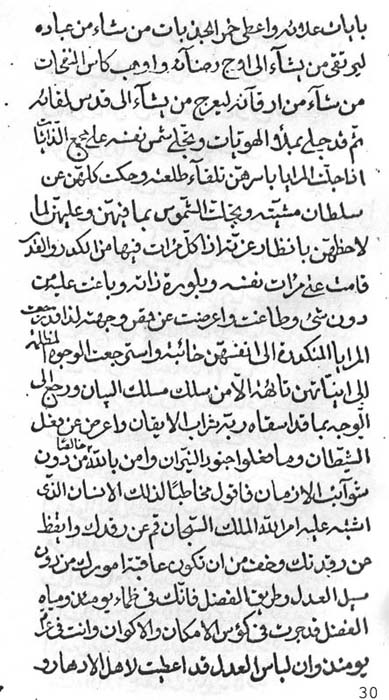 بايات علانيه واعطى خمر الجذبات من شاء من عباده
ليرتقى من يشاء الى اوج رضآئه و اوهب كاس النفحات
من شآء من ارقآئه ليعرج من يشآء الى قدس لقائه
ثم قد جلى بمبدء الهويات و تجلى شمس نفسه على جميع الذاتيات
اذا جلت المرايا باسرهن تلقآء طلعته وحكت كلهن عن
سلطان مشيته و تجلت الشموس بما فيهن وعليهن لما
لاحظهن بانظار عزته اذا كل مرات فيها من الكدر والقدر
قامت على مرات نفسه و بلورة ذاته و باغت عليه من
دون شئ وطاغت واعرضت عن حق وجهته لذا قد رجعت
المرايا المنكدرة الى انفسهن خائبة واسترجعت الوجوه الظلمانية
الى انياتهن تائهة الا من سلك مسلك البيان ورجع الى
الوجه بما قد اسقاه ربه شراب الايقان واعرض عن فعل
الشيطان وما فعلوا جنود النيران وامن بالله خالصا من دون
شوآئب الازمان فاقول مخاطبا لذلك الانسان الذى
اشتبه عليه امر الله الملك السبحان قم عن رقدك وايقظ
من رقدتك وخف من ان تكون عاقبة امورك من دون
سبل العدل وطريق الفضل فانك فى ظماء يومئذ ومياه
الفضل قد جرت فى كؤس الامكان والاكوان وانت فى عرى
يومئذ وان لباس العدل قد اعطيت لاهل الادهار و
30